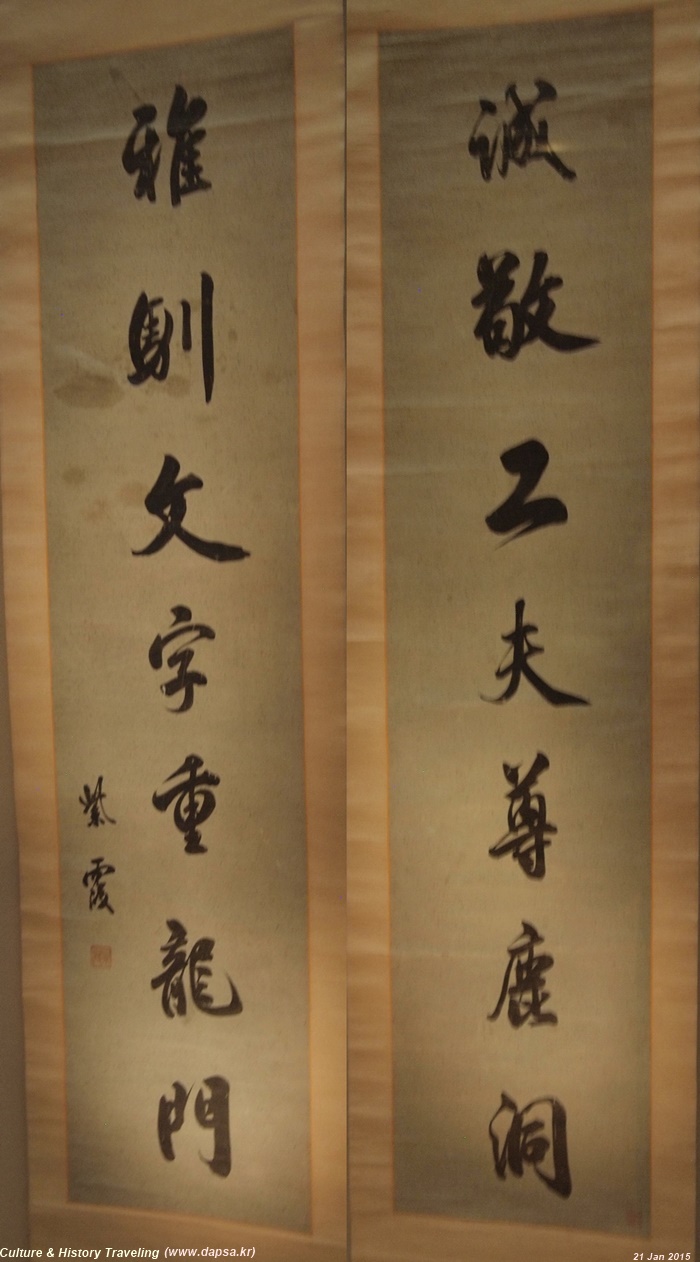 誠敬工夫尊鹿洞
雅馴文字重龍門
紫霞
Culture & History Traveling (www.dapsa.kr)
21 Jan 2015